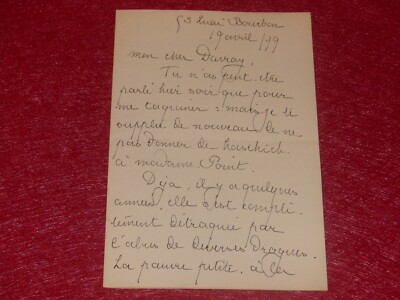 53 Quai Bourbon
19 avril /99
mon cher Davray,
Tu n'as peut être
parlé hier soir que pour
me taquiner : mais je te
supplie de nouveau de ne
pas donner de haschich
à madame Point.
Déja, il y a quelques
années, elle s'est complè
tement détraquée par
l'abus de diverses drogues.
La pauvre petite, a la